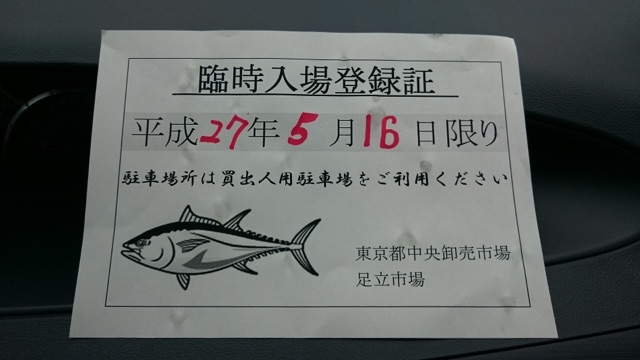 臨時入場登録証
平成27年5月16日限り
駐車場所は買出人用駐車場をご利用ください
東京都中央卸売市場
足立市場